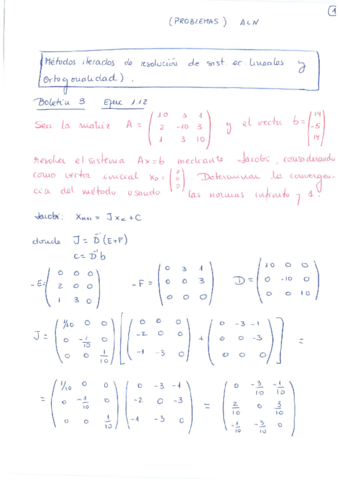 1
(PROBLEMAS) ALN
Métodos iterados de resolución de sist. ec. lineales y
Ortogonalidad).
Boletín 3 Ejer 1.12
Sea la matriz A = ( 10 3 1 / 2 -10 3 / 1 3 10 ) y el vector b = ( 14 / -5 / 14 )
resolver el sistema Ax=b mediante Jacobi, considerando
como vector inicial x₀ = ( 0 / 0 / 0 ). Determinar la convergen-
cia del método usando las normas infinito y 1.
Jacobi: xₖ₊₁ = J xₖ + C
donde J = D⁻¹(E+F)
C = D⁻¹b
-E = ( 0 0 0 / 2 0 0 / 1 3 0 ) -F = ( 0 3 1 / 0 0 3 / 0 0 0 ) D = ( 10 0 0 / 0 -10 0 / 0 0 10 )
J = ( 1/10 0 0 / 0 -1/10 0 / 0 0 1/10 ) [ ( 0 0 0 / -2 0 0 / -1 -3 0 ) + ( 0 -3 -1 / 0 0 -3 / 0 0 0 ) ] =
= ( 1/10 0 0 / 0 -1/10 0 / 0 0 1/10 ) ( 0 -3 -1 / -2 0 -3 / -1 -3 0 ) = ( 0 -3/10 -1/10 / 2/10 0 3/10 / -1/10 -3/10 0 )